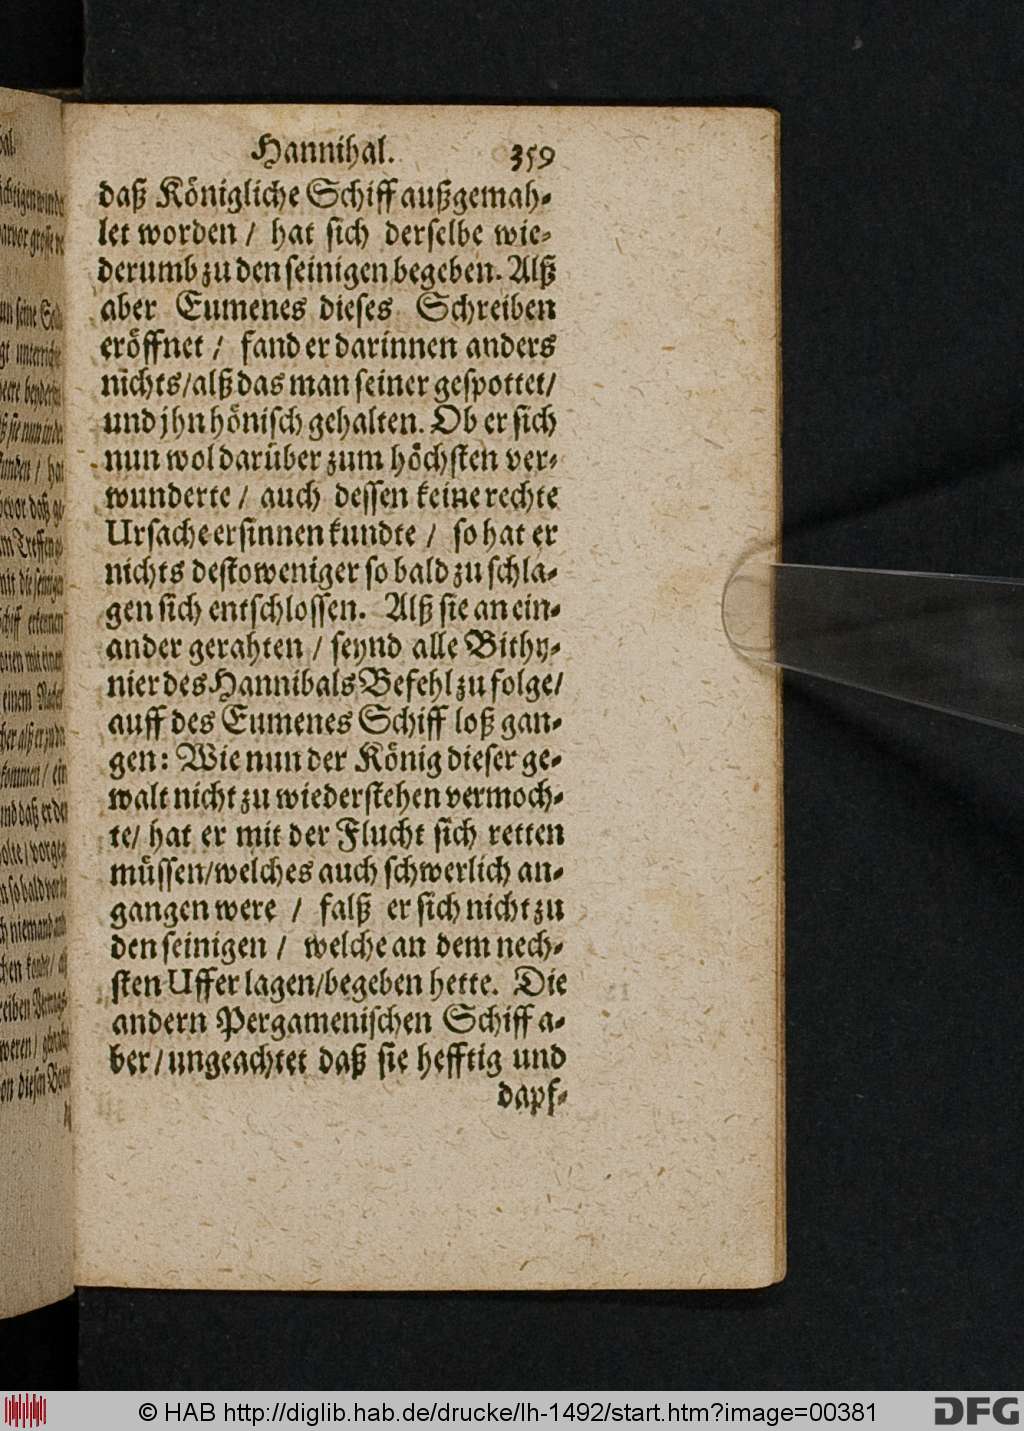 Hannihal. 359
daß Königliche Schiff außgemah-
let worden / hat sich derselbe wie-
derumb zu den seinigen begeben. Alß
aber Eumenes dieses Schreiben
eröffnet / fand er darinnen anders
nichts / alß das man seiner gespottet /
und jhn hönisch gehalten. Ob er sich
nun wol darüber zum höchsten ver-
wunderte / auch dessen keine rechte
Ursache ersinnen kundte / so hat er
nichts destoweniger so bald zu schla-
gen sich entschlossen. Alß sie an ein-
ander gerahten / seynd alle Bithy-
nier des Hannibals Befehl zu folge /
auff des Eumenes Schiff loß gan-
gen: Wie nun der König dieser ge-
walt nicht zu wiederstehen vermoch-
te / hat er mit der Flucht sich retten
müssen / welches auch schwerlich an-
gangen were / falß er sich nicht zu
den seinigen / welche an dem nech-
sten Uffer lagen / begeben hette. Die
andern Pergamenischen Schiff a-
ber / ungeachtet daß sie hefftig und
dapf-
© HAB http://diglib.hab.de/drucke/lh-1492/start.htm?image=00381
DFG